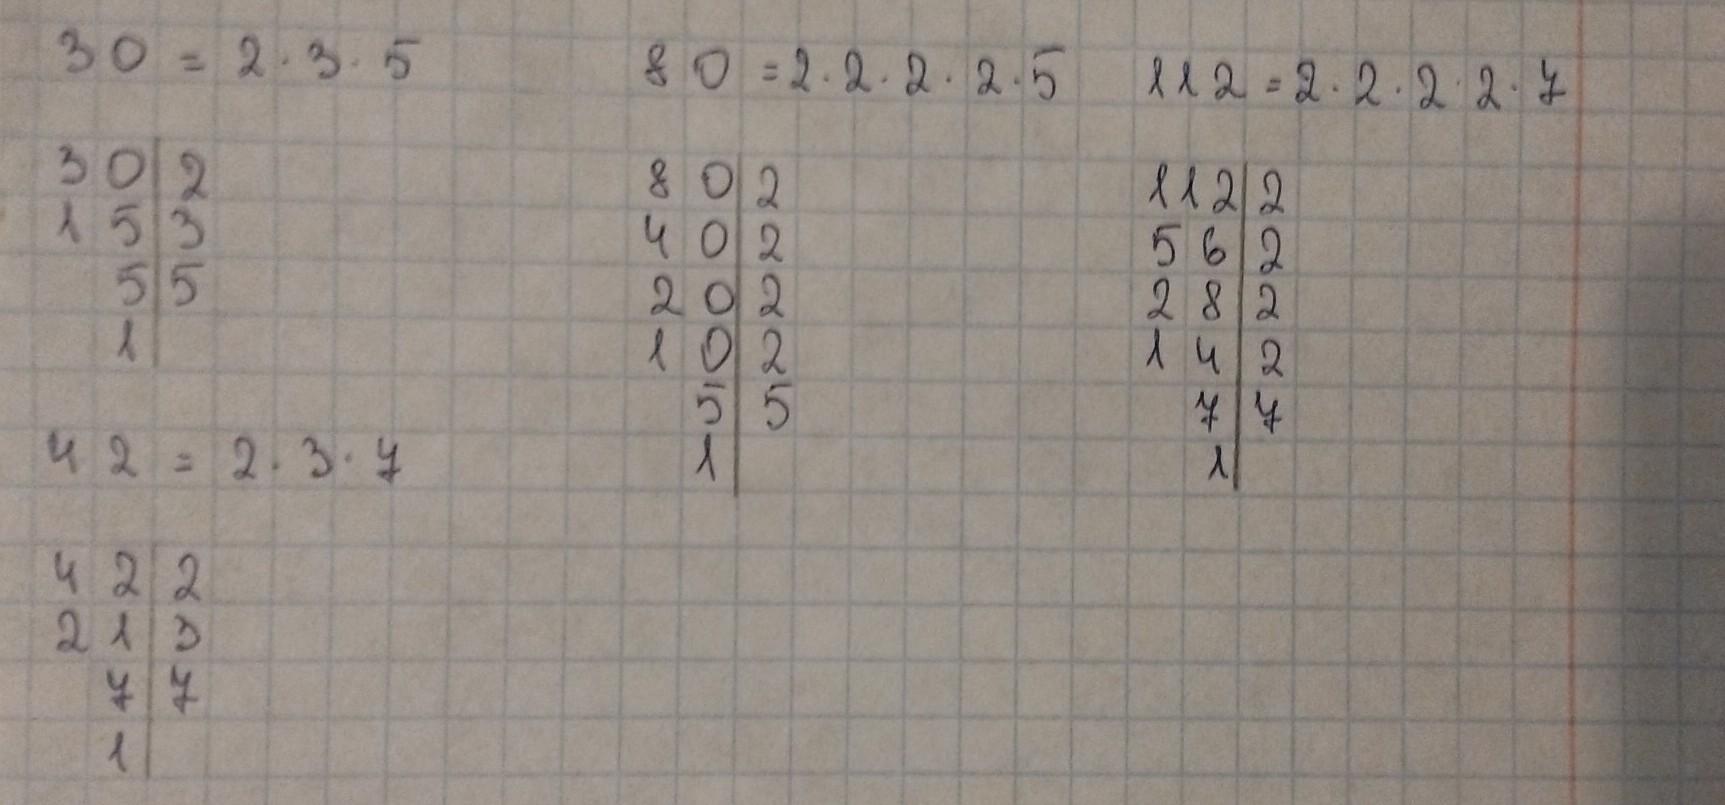 30 = 2·3·5
30|2
15|3
5|5
1|
42 = 2·3·7
42|2
21|3
7|7
1|
80 = 2·2·2·2·5
80|2
40|2
20|2
10|2
5|5
1|
112 = 2·2·2·2·7
112|2
56|2
28|2
14|2
7|7
1|